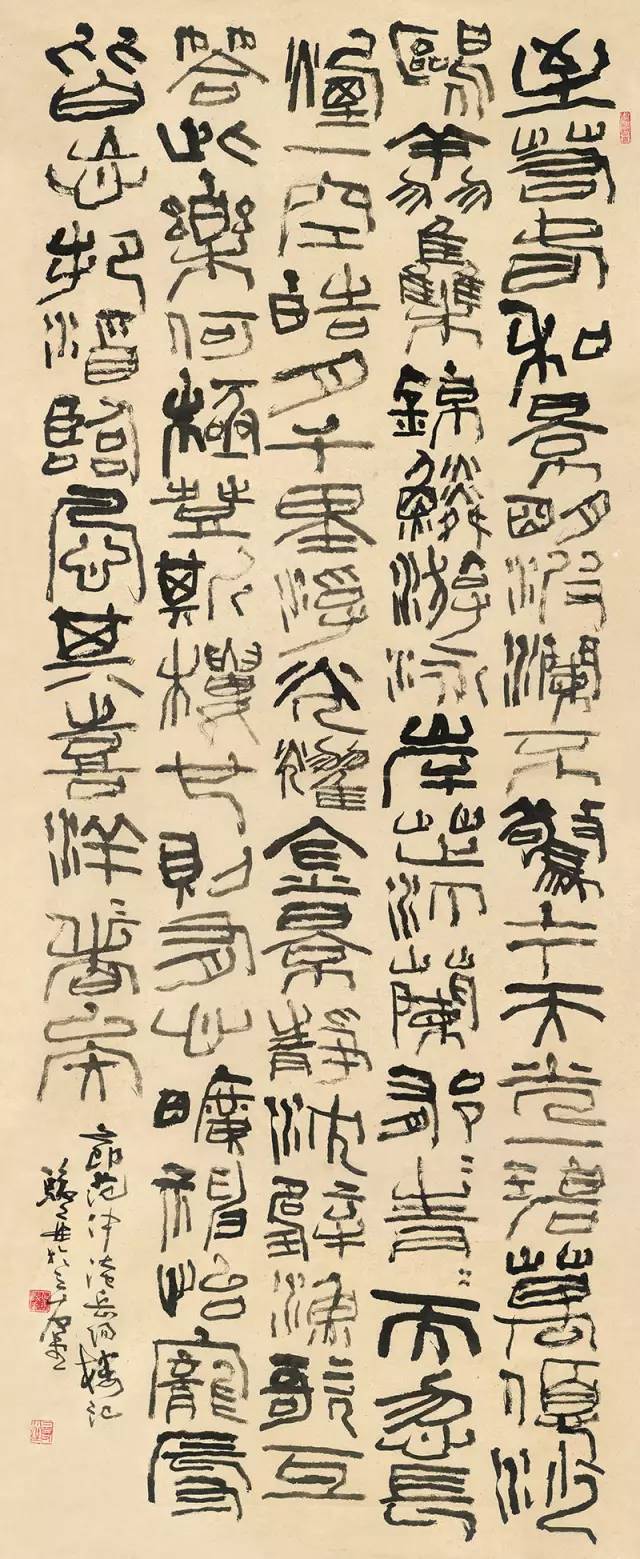 至若春和景明波瀾不驚上下天光一碧萬頃沙
鷗翔集錦鱗游泳岸芷汀蘭郁〻青〻而忽長
煙一空皓月千里浮光耀金景靜沈璧漁歌互
答此樂何極登斯樓也則有心曠神怡寵辱
皆忘把酒臨風其喜洋〻者矣
節范仲淹岳陽樓記